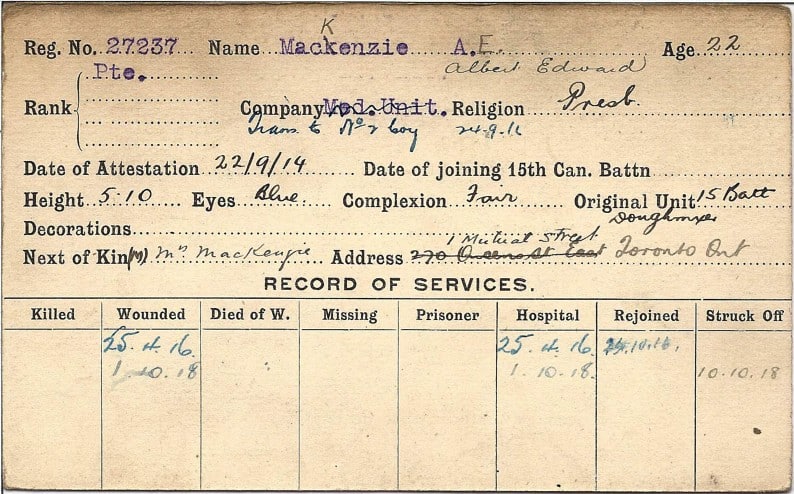 K
Reg. No. 27237 Name Mackenzie A.E. Age 22
Pte. Albert Edward
Rank Company Med. Unit. Religion Presb.
Trans to No 2 Coy
Date of Attestation 22/9/14 Date of joining 15th Can. Battn
Height 5-10 Eyes Blue. Complexion Fair Original Unit 15 Batt
Doughmixer
Decorations
1 Mutual Street
Next of Kin (M) Mrs MacKenzie Address 270 Queen St East Toronto Ont
RECORD OF SERVICES.
Killed Wounded Died of W. Missing Prisoner Hospital Rejoined Struck Off
25.4.16. 25.4.16.
1.10.18 1.10.18. 10.10.18